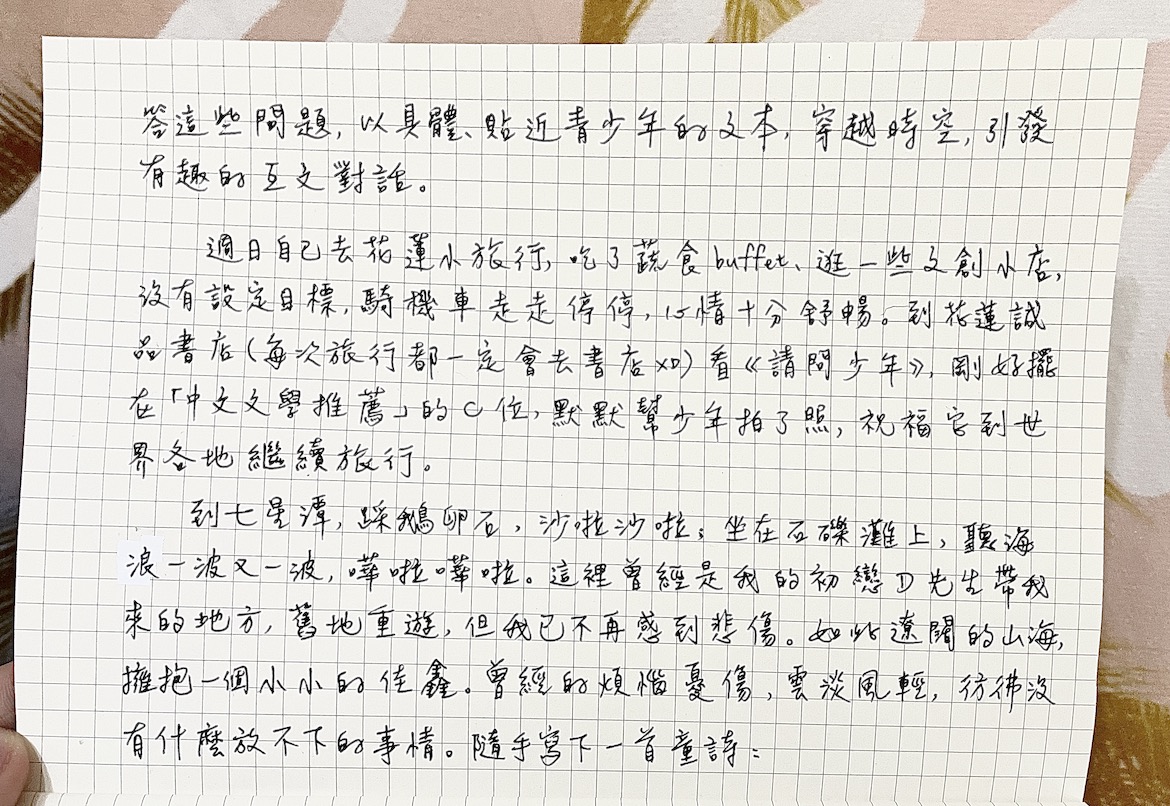 答這些問題，以具體、貼近青少年的文本，穿越時空，引發
有趣的互文對話。
週日自己去花蓮小旅行，吃了蔬食buffet、逛一些文創小店，
沒有設定目標，騎機車走走停停，心情十分舒暢。到花蓮誠
品書店（每次旅行都一定會去書店XD）看《請問少年》，剛好擺
在「中文文學推薦」的C位，默默幫少年拍了照，祝福它到世
界各地繼續旅行。
到七星潭，踩鵝卵石，沙啦沙啦；坐在石礫灘上，聽海
浪一波又一波，嘩啦嘩啦。這裡曾經是我的初戀D先生帶我
來的地方，舊地重遊，但我已不再感到悲傷。如此遼闊的山海，
擁抱一個小小的佳鑫。曾經的煩惱憂傷，雲淡風輕，彷彿沒
有什麼放不下的事情。隨手寫下一首童詩：